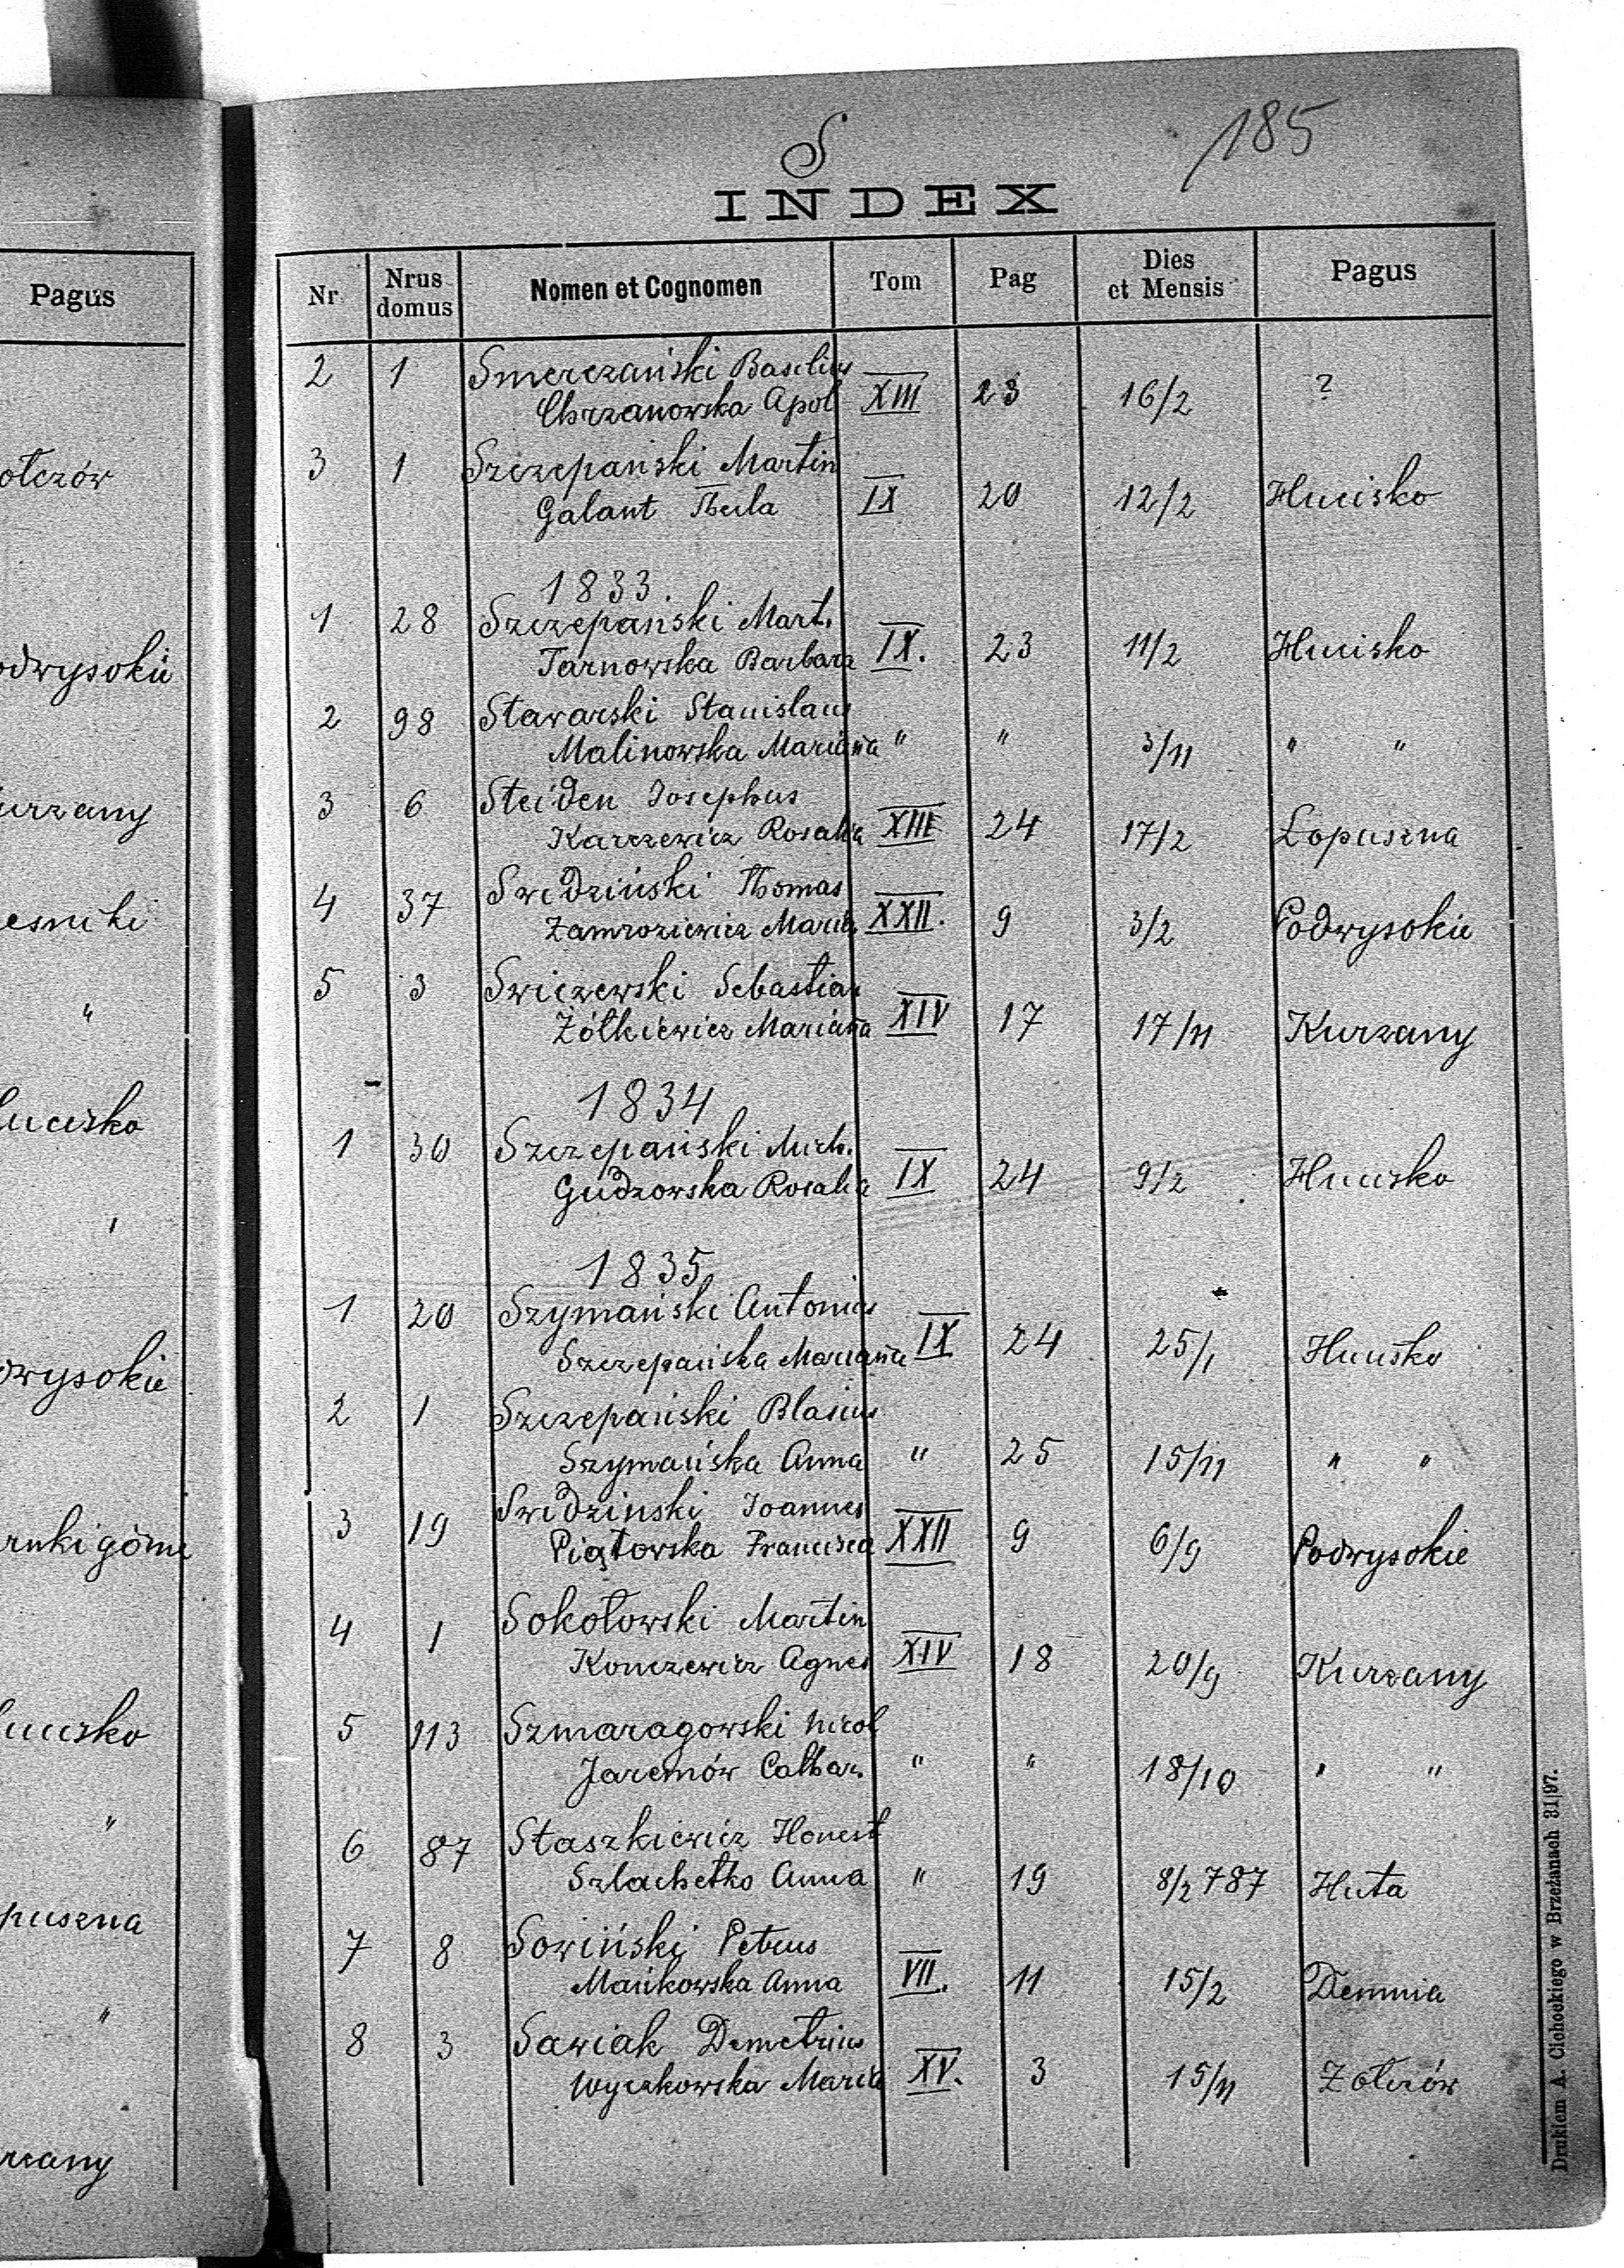 Pagus
odwysokie
esniki
"
owysokie
"
"
S
185
INDEX
Nr Nrus domus Nomen et Cognomen Tom Pag Dies et Mensis Pagus
2 1 Smerczański Basilius
Chrzanowska Apol XIII 23 16/2 ?
3 1 Szczepański Martin
Galant Thecla IX 20 12/2 Hucisko
1833.
1 28 Szczepański Mart.
Tarnowska Barbara IX. 23 11/2 Hucisko
2 98 Stawarski Stanislaus
Malinowska Marianna " " 3/11 " "
3 6 Steiden Josephus
Karczewicz Rosalia XIII 24 17/2 Lopuszna
4 37 Swidziński Thomas
Zamroziewicz Maria XXII. 9 3/2 Podwysokie
5 3 Swiczewski Sebastian
Żółkiewicz Marianna XIV 17 17/11 Kurzany
1834
1 30 Szczepański Mich.
Gudzowska Rosalia IX 24 9/2 Hucisko
1835
1 20 Szymański Antonius
Szczepańska Marianna IX 24 25/1 Hucisko
2 1 Szczepański Blasius
Szymańska Anna " 25 15/11 " "
3 19 Swidzinski Joannes
Piątowska Francisca XXII 9 6/9 Podwysokie
4 1 Sokołowski Martin
Konczewicz Agnes XIV 18 20/9 Kurzany
5 113 Szmaragowski Nicol
Jaremów Cathar. " " 18/10 " "
6 87 Staszkiewicz Honest
Szlachetko Anna " 19 8/2 787 Huta
7 8 Sowiński Petrus
Mańkowska Anna VII. 11 15/2 Demnia
8 3 Sawiak Demetrius
Wyczkowska Maria XV. 3 15/11 Żołczów
Drukiem A. Cichockiego w Brzeżanach 31|97.